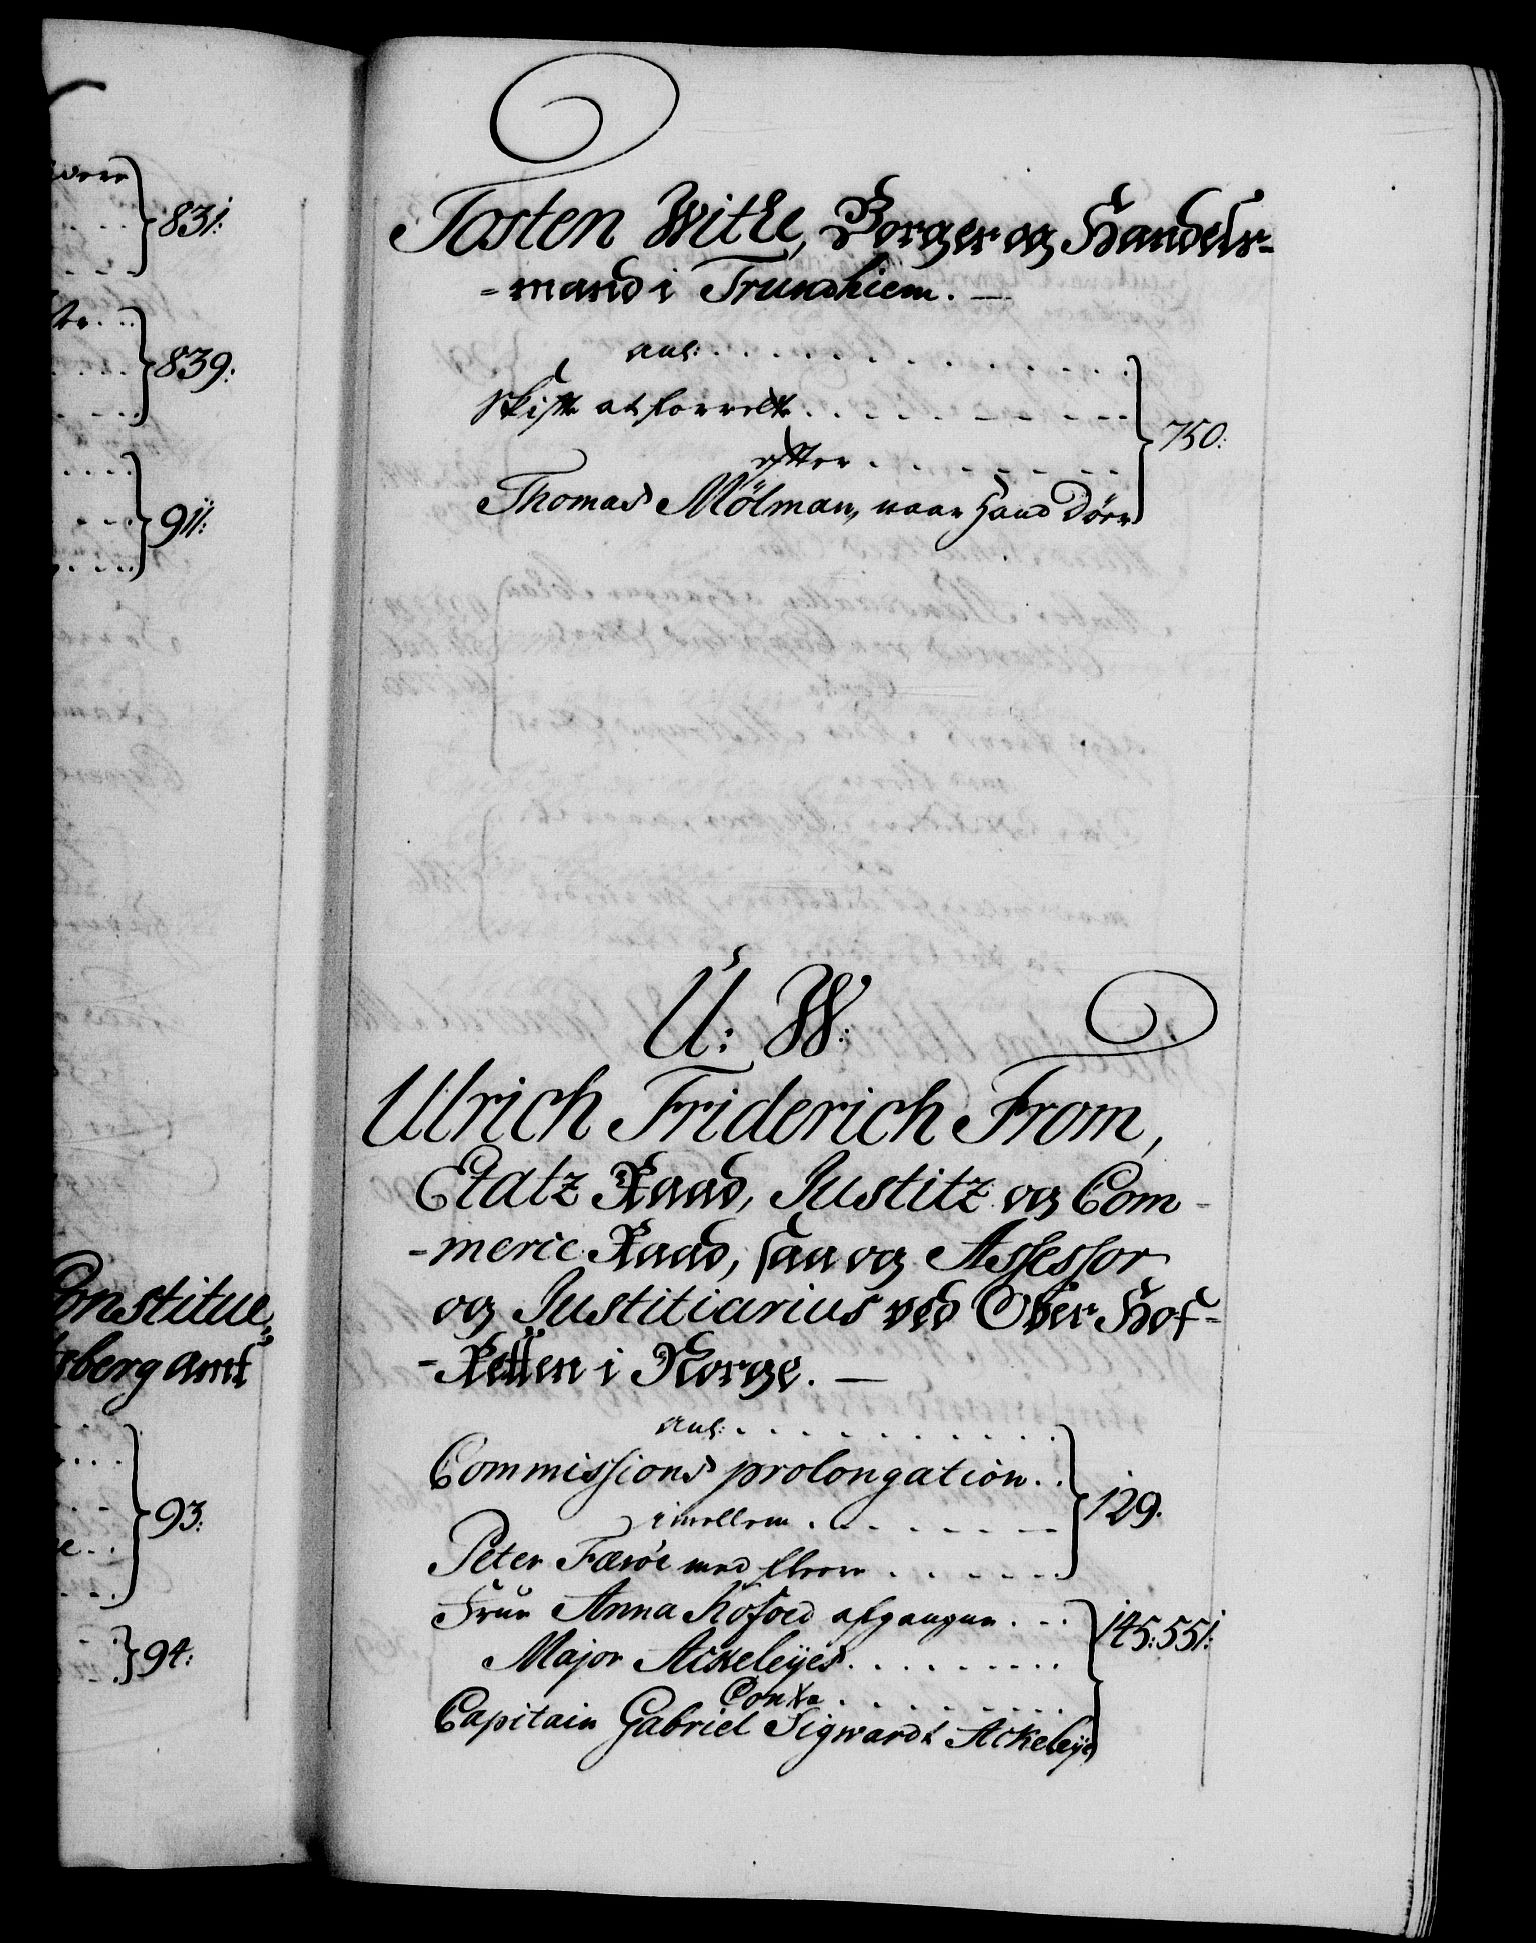 831:
839:
911:
Constitue„
sberg amt
93:
94:
Tosten Withe, Borger og Handels-
-mand i Trundhiem. —
anl: . . . . . . . . . .
Skifte at forrette . . . . . . . .
efter . . . . . . . . 750:
Thomas Mölman, naar hand döer
U: W:
Ulrich Friderich From,
Etatz Raad, Justitz og Com-
-merce Raad, saa og Assessor
og Justitiarius ved Ober Hof-
-Retten i Norge. —
anl: . . . . . . . . . .
Commissions prolongation . .
imellem . . . . . . . 129.
Peter Færöe med flere . . . . . .
Frue Anna Kofoed afgangne . . . 145: 551:
Major Ackeleÿes . . . . . . . .
Contra . . . . . . . .
Capitain Gabriel Sigwardt Ackeleÿe